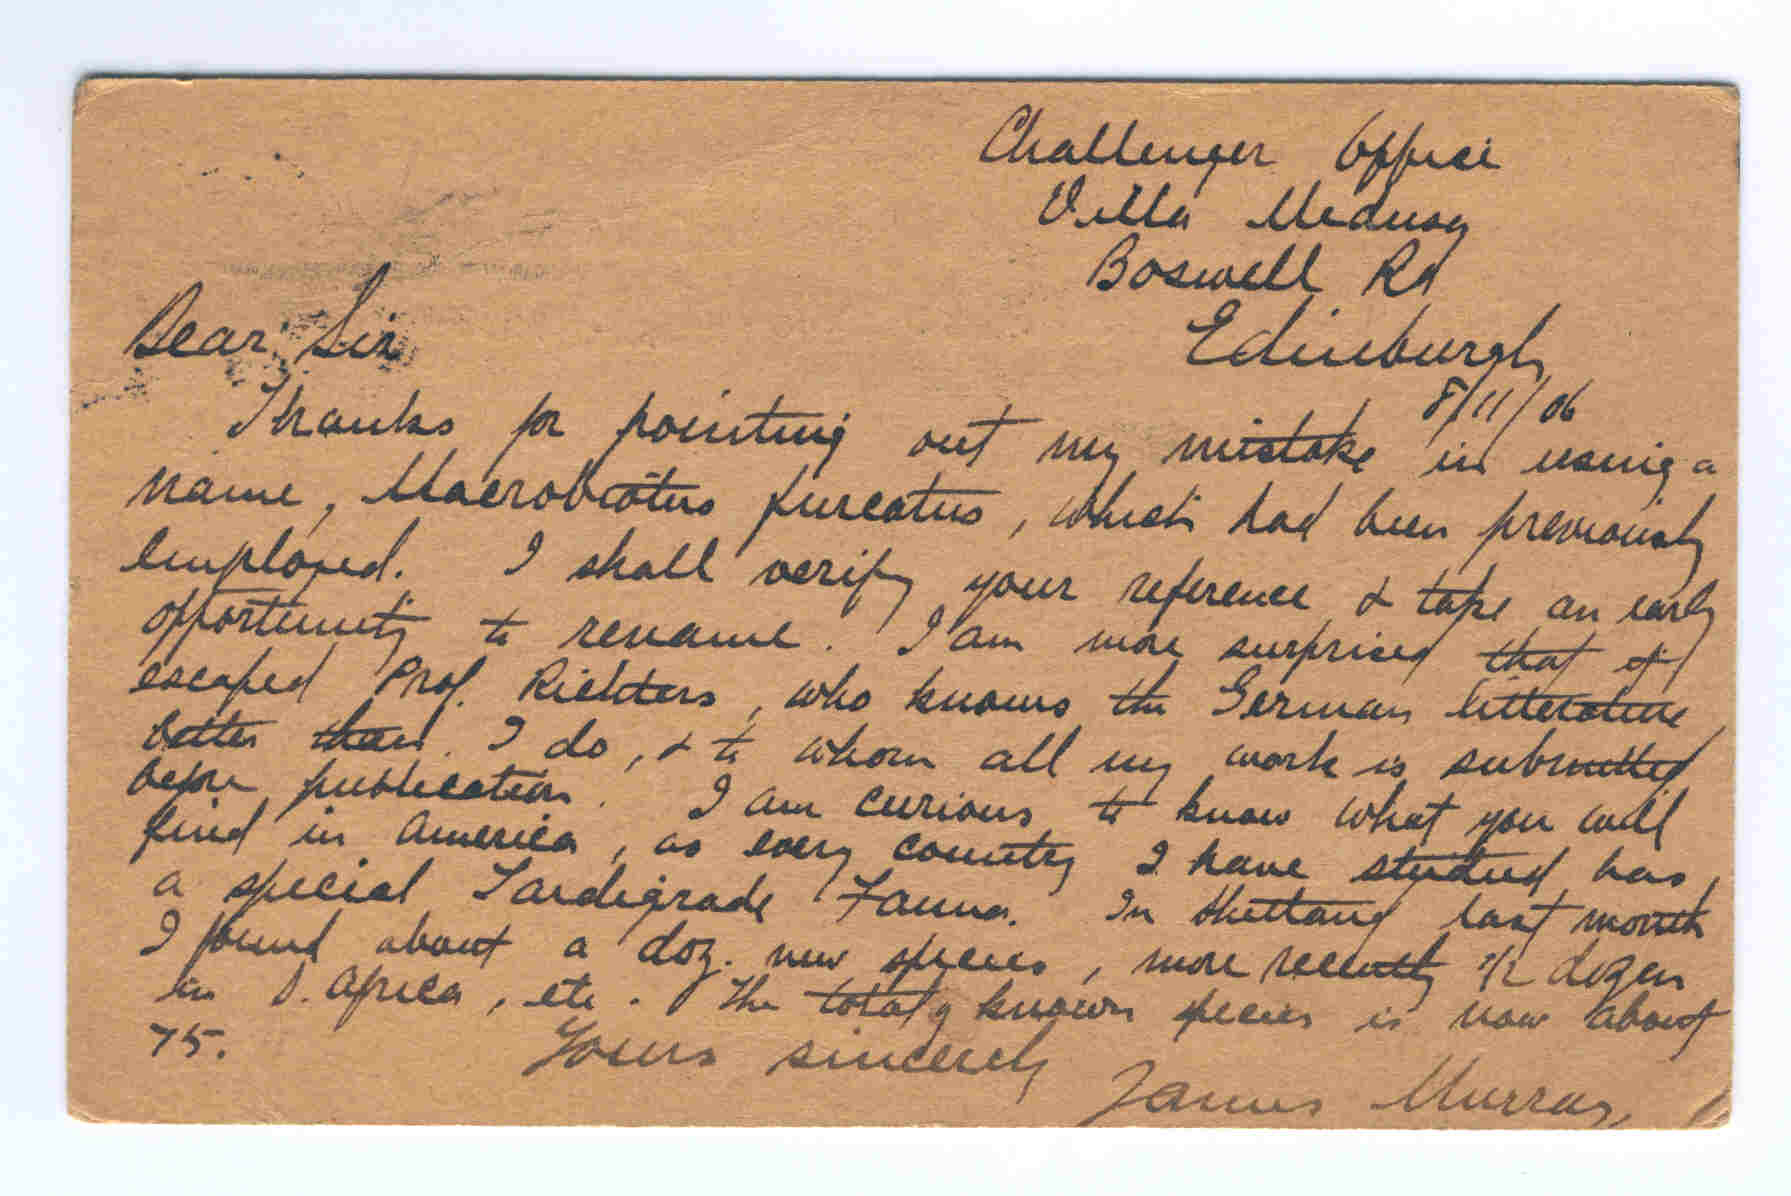 Challenger Office
Villa Medusa
Boswell Rd
Edinburgh
8/11/06
Dear Sir
Thanks for pointing out my mistake in using a
name, Macrobiotus furcatus, which had been previously
employed. I shall verify your reference & take an early
opportunity to rename. I am more surprised that it
escaped Prof. Richters, who knows the German litterature
better than I do, & to whom all my work is submitted
before publication. I am curious to know what you will
find in America, as every country I have studied has
a special Tardigrade Fauna. In Shetland last month
I found about a doz. new species, more recently 1/2 dozen
in S. Africa, etc. The total of known species is now about
75.
Yours sincerely
James Murray